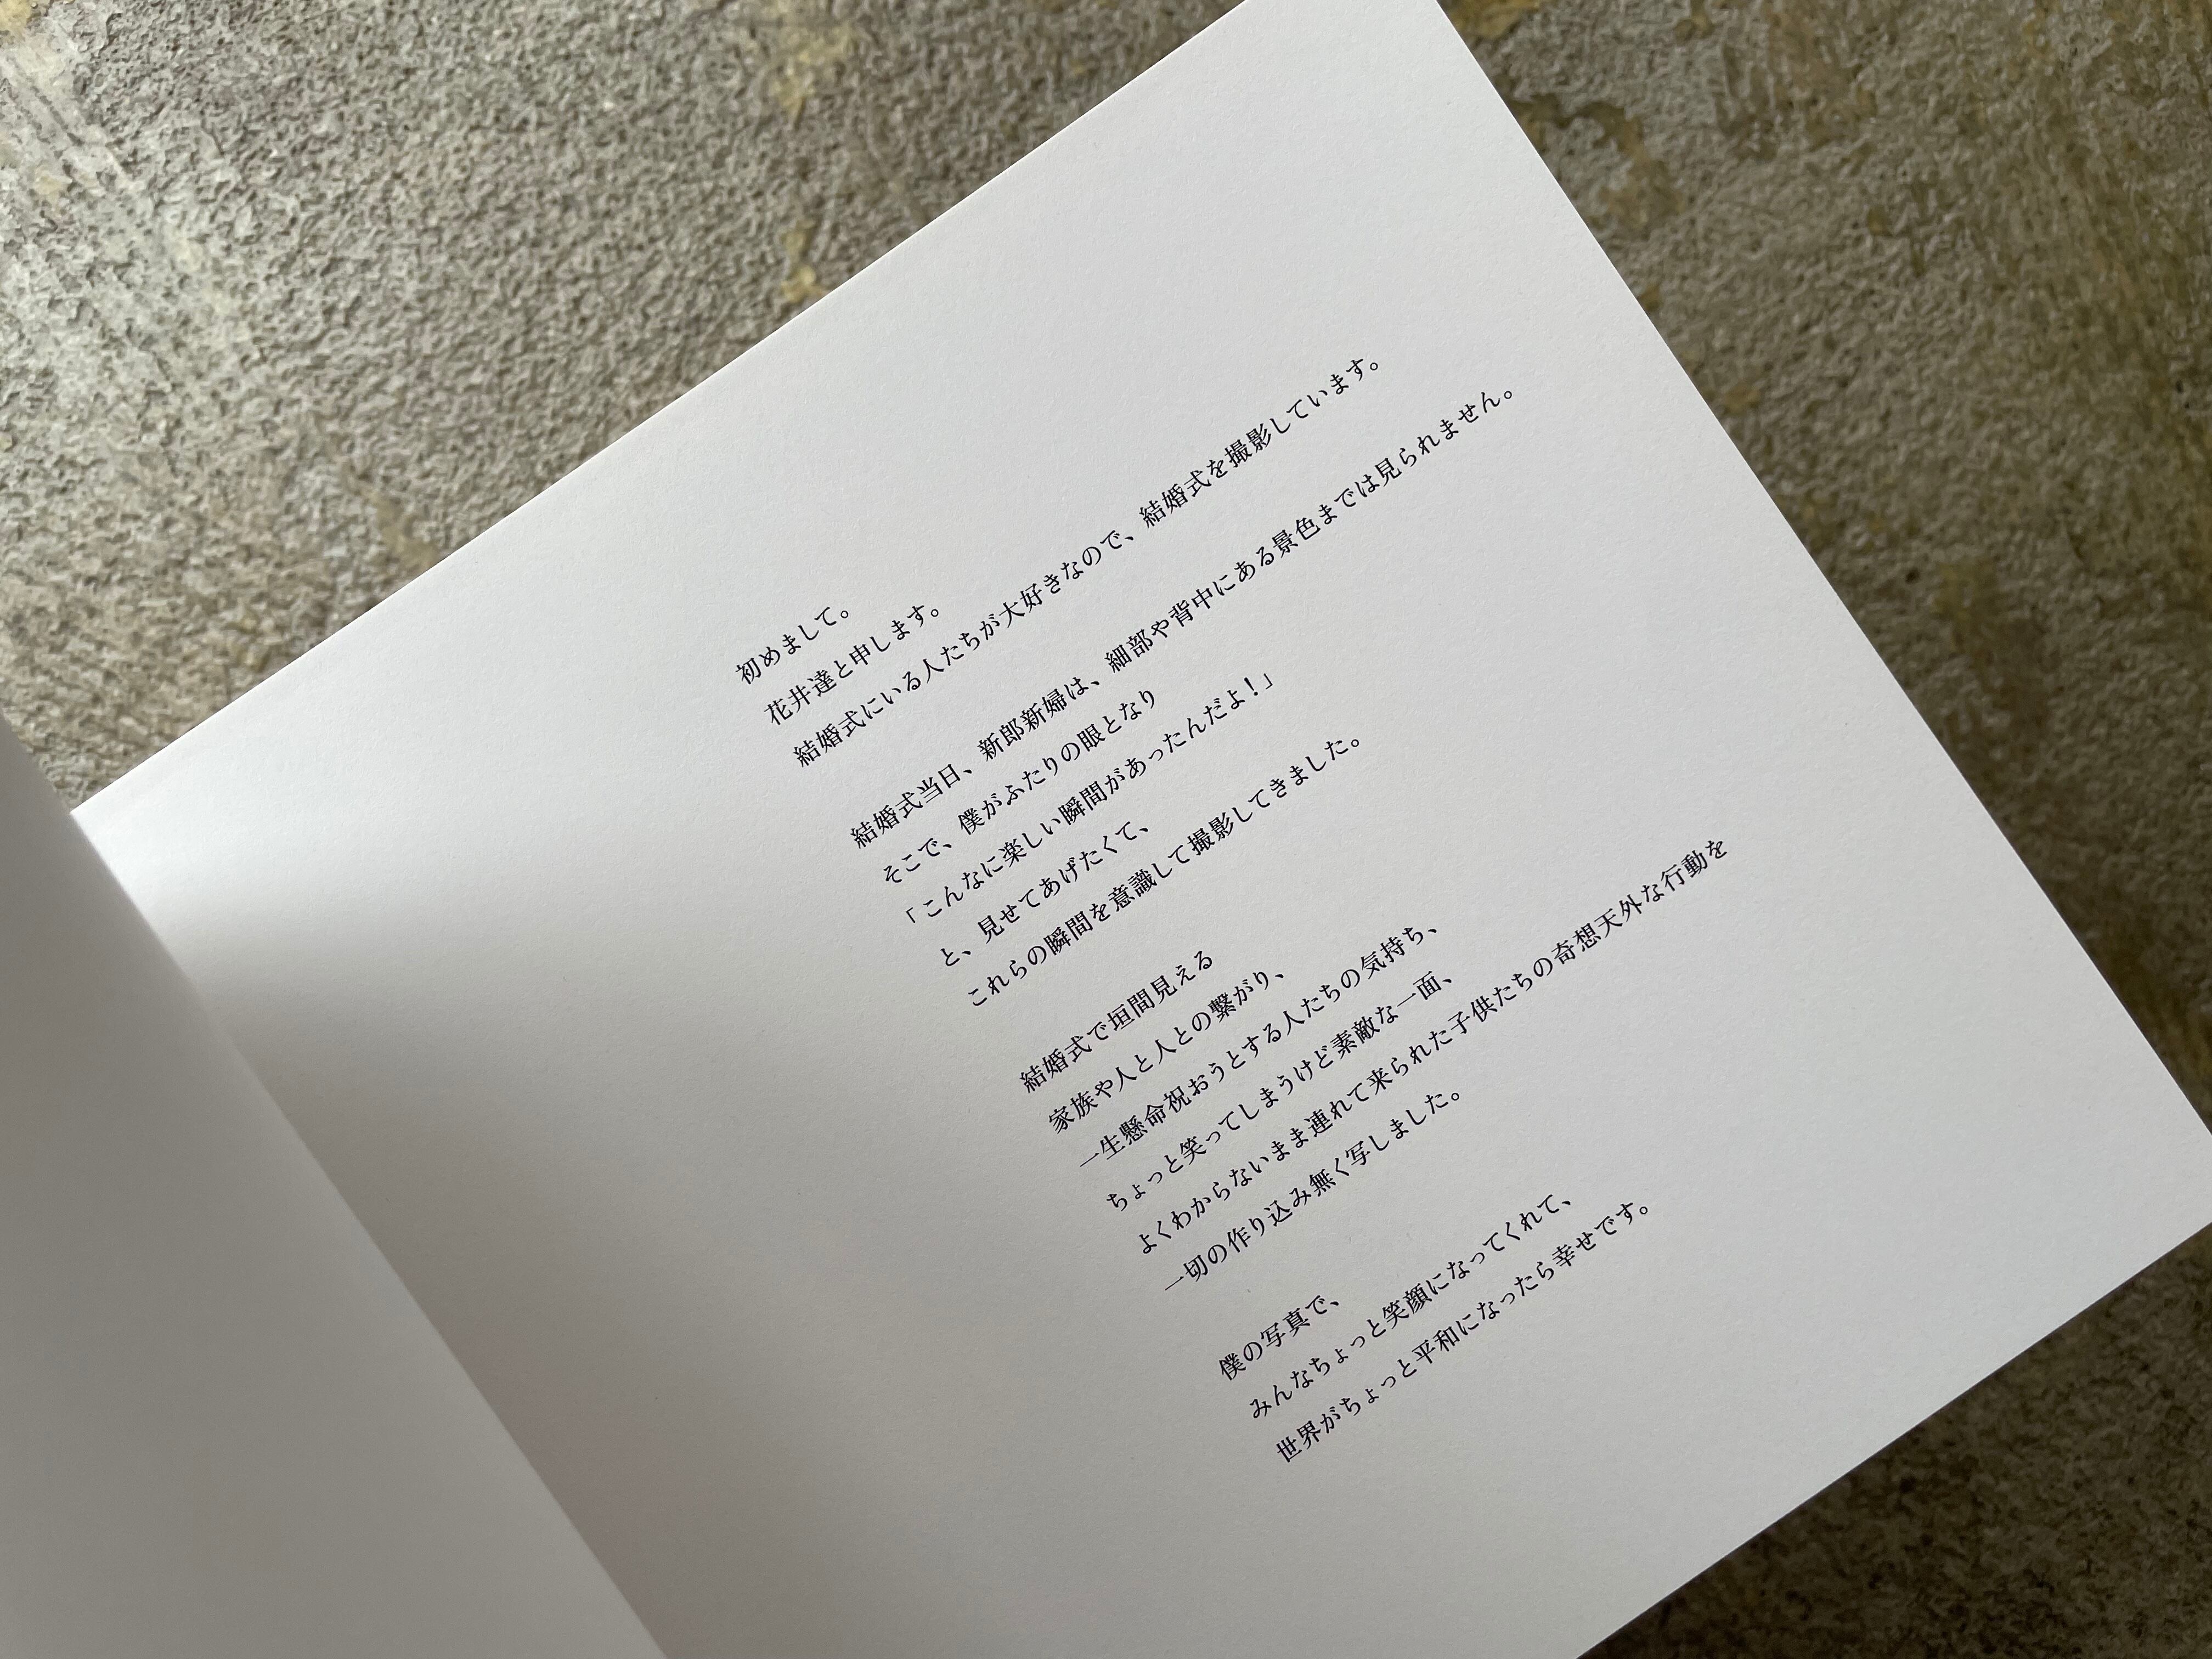 初めまして。
花井達と申します。
結婚式にいる人たちが大好きなので、結婚式を撮影しています。
結婚式当日、新郎新婦は、細部や背中にある景色までは見られません。
そこで、僕がふたりの眼となり
「こんなに楽しい瞬間があったんだよ！」
と、見せてあげたくて、
これらの瞬間を意識して撮影してきました。
結婚式で垣間見える
家族や人と人との繋がり、
一生懸命祝おうとする人たちの気持ち、
ちょっと笑ってしまうけど素敵な一面、
よくわからないまま連れて来られた子供たちの奇想天外な行動を
一切の作り込み無く写しました。
僕の写真で、
みんなちょっと笑顔になってくれて、
世界がちょっと平和になったら幸せです。